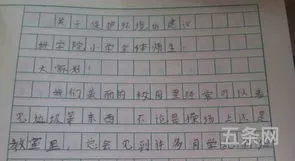 关于保护环境的建议
学院小学全体师生:
大家好!
我们美丽的校园里经常可以看
见垃圾等东西,不论是操场上还是
教室里,总会见到许多
五条网